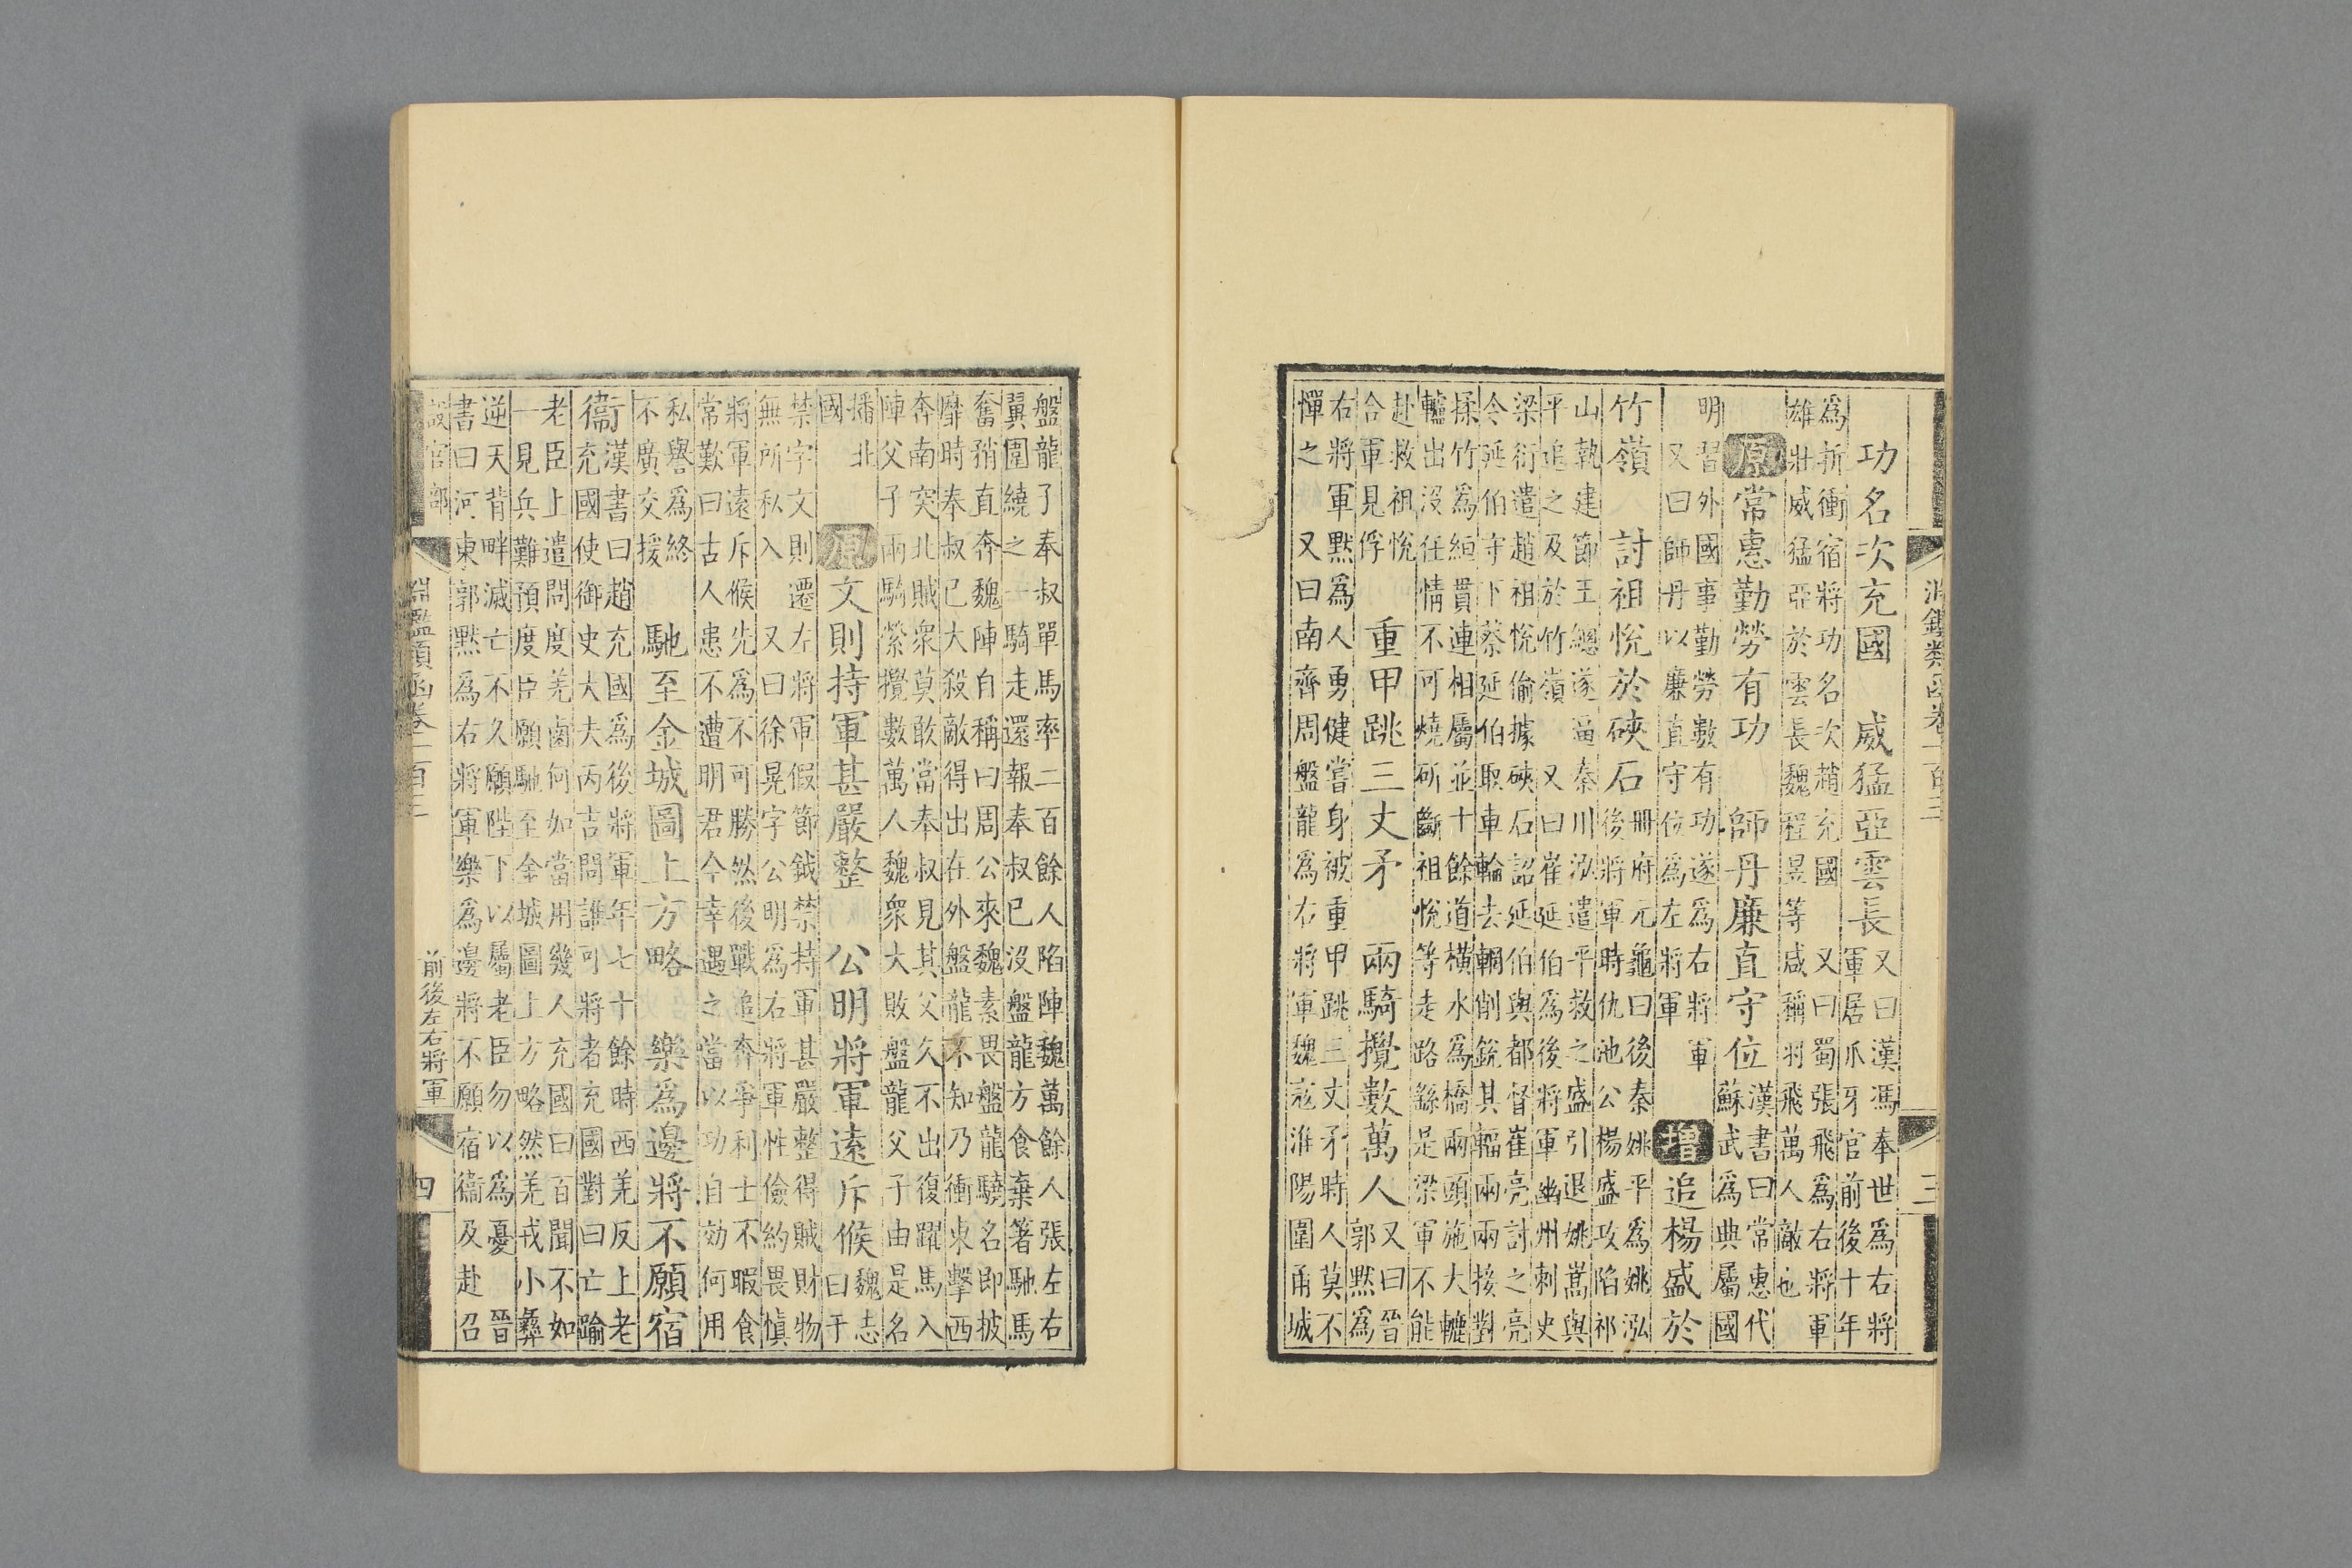 淵鑑類函卷一百三 三
功名次充國 威猛亞雲長 又曰漢馮奉世為右將
軍居爪牙官前後十年
為折衝宿將功名次趙充國 又曰蜀張飛為右將軍
雄壯威猛亞於雲長魏程昱等咸稱羽飛萬人敵也
原 常惠勤勞有功 師丹廉直守位 漢書曰常惠代
蘇武為典屬國
明習外國事勤勞數有功遂為右將軍
又曰師丹以廉直守位為左將軍 增 追楊盛於
竹嶺 討祖悅於硤石 冊府元龜曰後秦姚平為姚泓
後將軍時仇池公楊盛攻陷祁
山執建節王總遂逼秦川泓遣平救之盛引退姚嵩與
平追之及於竹嶺 又曰崔延伯為後將軍幽州刺史
梁衍遣趙祖悅偷據硤石詔延伯與都督崔亮討之亮
令延伯守下蔡延伯取車輪去輞削銳其輻兩兩接對
揉竹為絙貫連相屬並十餘道橫水為橋兩頭施大轆
轤出沒任情不可燒斫斷祖悅等走路繇是梁軍不能
赴救祖悅
合軍見俘 重甲跳三丈矛 兩騎攪數萬人 又曰晉
郭默為
右將軍默為人勇健嘗身被重甲跳三丈矛時人莫不
憚之 又曰南齊周盤龍為右將軍魏寇淮陽圍甬城
盤龍子奉叔單馬率二百餘人陷陣魏萬餘人張左右
翼圍繞之一騎走還報奉叔已沒盤龍方食棄箸馳馬
奮矟直奔魏陣自稱曰周公來魏素畏盤龍驍名即披
靡時奉叔已大殺敵得出在外盤龍不知乃衝東擊西
奔南突北賊衆莫敢當奉叔見其父久不出復躍馬入
陣父子兩騎縈攪數萬人魏衆大敗盤龍父子由是名
播北
國 原 文則持軍甚嚴整 公明將軍遠斥候 魏志
曰于
禁字文則遷左將軍假節鉞禁持軍甚嚴整得賊財物
無所私入 又曰徐晃字公明為右將軍性儉約畏慎
將軍遠斥候先為不可勝然後戰追奔爭利士不暇食
常歎曰古人患不遭明君今幸遇之當以功自効何用
私譽為終
不廣交援 馳至金城圖上方略 樂為邊將不願宿
衞 漢書曰趙充國為後將軍年七十餘時西羌反上老
充國使御史大夫丙吉問誰可將者充國對曰亡踰
老臣上遣問度羌鹵何如當用幾人充國曰百聞不如
一見兵難預度臣願馳至金城圖上方略然羌戎小彝
逆天背畔滅亡不久願陛下以屬老臣勿以為憂 晉
書曰河東郭默為右將軍樂為邊將不願宿衞及赴召
設官部 淵鑑類函卷一百三 前後左右將軍 四